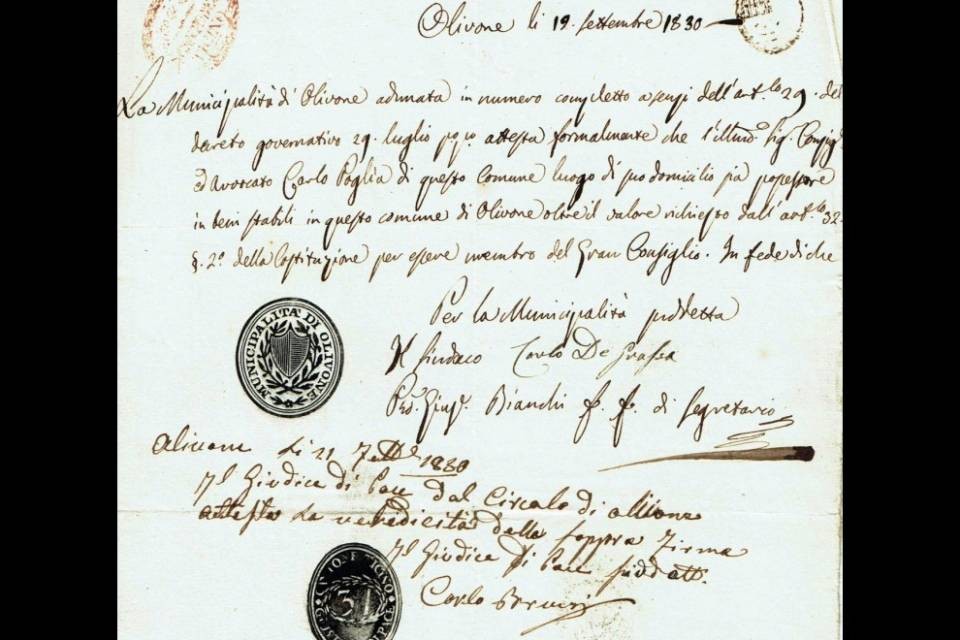 Olivone li 19. settembre 1830
La Municipalità di Olivone adunata in numero completto a sensi dell'art.lo 29. del
decreto governativo 29. luglio p.o p.o attesta formalmente che l'illmo Sig. Consigl
ed Avvocato Carlo Poglia di questo comune luogo di suo domicilio sia possessore
in beni stabili in questo comune di Olivone oltre il valore richiesto dall'art.lo 32.
§. 2.o della Costituzione per essere membro del Gran Consiglio. In fede di che
Per la Municipalità suddetta
Il Sindaco Carlo De Grassa
Bianchi f. f. di Segretario
MUNICIPALITÀ DI OLIVONE
li 21 1830
Il Giudice di Pace dal Circolo di
attesta la della soppra firma
Il Giudice di Pace
Carlo